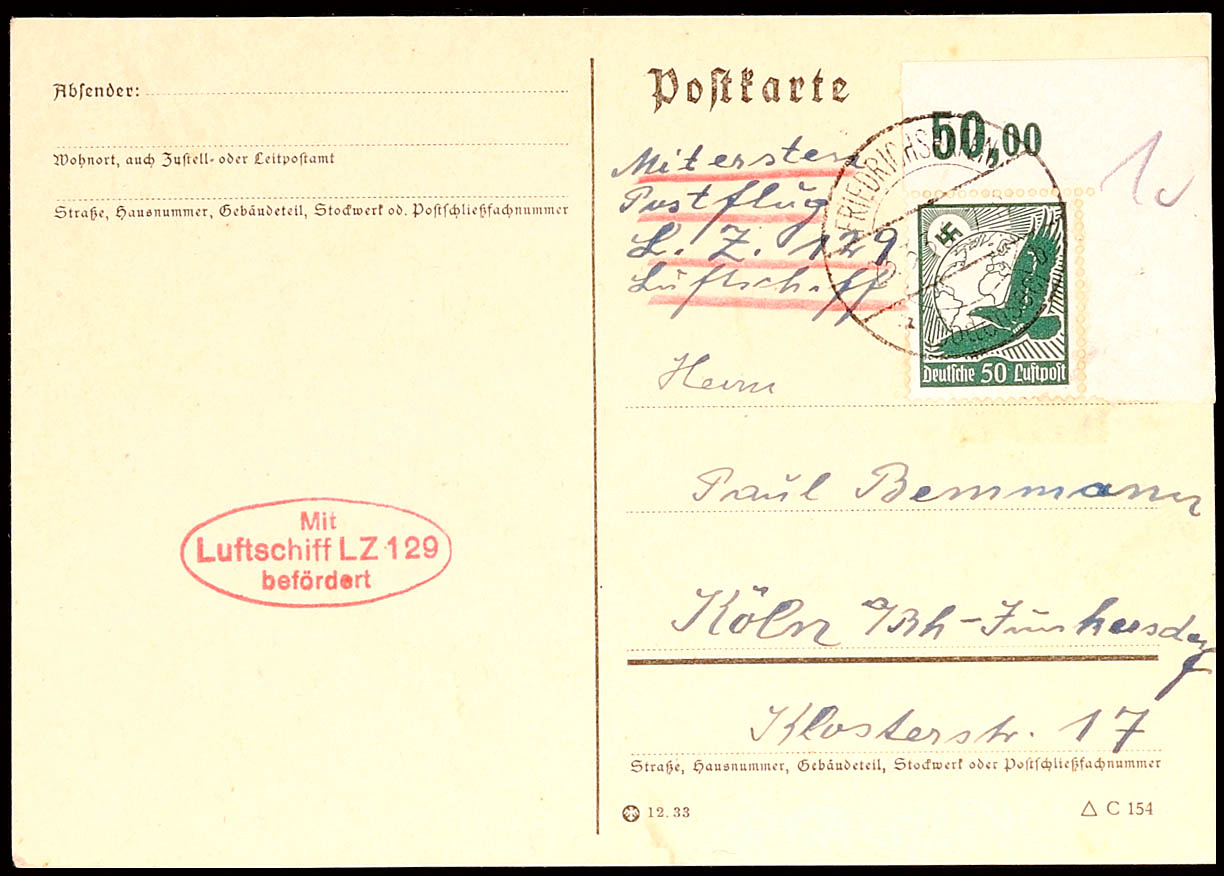 Absender:
Wohnort, auch Zustell- oder Leitpostamt
Straße, Hausnummer, Gebäudeteil, Stockwerk od. Postschließfachnummer
Mit
Luftschiff LZ 129
befördert
Postkarte
50,00
Mit ersten
Postflug
L. Z. 129
Luftschiff
FRIEDRICHSHAFEN
Deutsche 50 Luftpost
Herrn
Paul Bemmann
Köln a/Rh-Junkersdorf
Klosterstr. 17
Straße, Hausnummer, Gebäudeteil, Stockwerk oder Postschließfachnummer
12.33
△ C 154